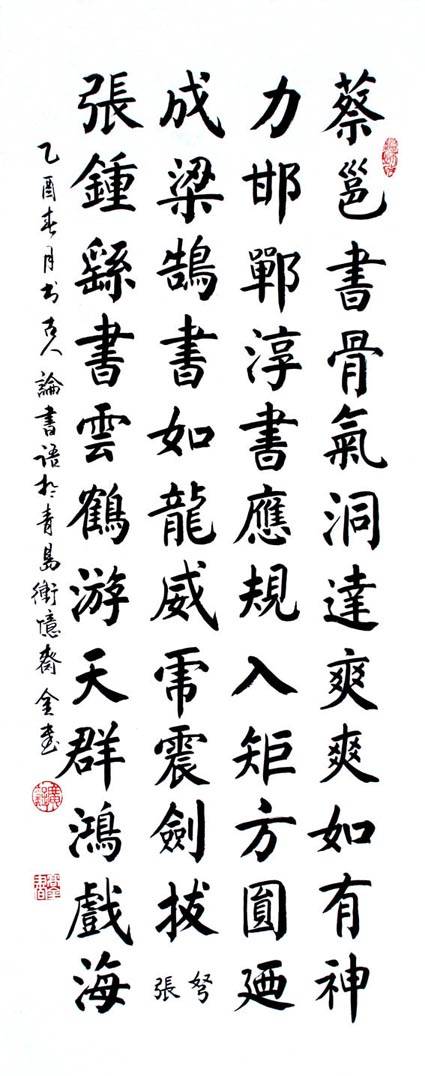 蔡邕書骨氣洞達爽爽如有神
力邯鄲淳書應規入矩方圓廼
成梁鵠書如龍威虎震劍拔
弩張
張鍾繇書雲鶴游天群鴻戲海
乙酉春月书古人論書语於青島憶齋金